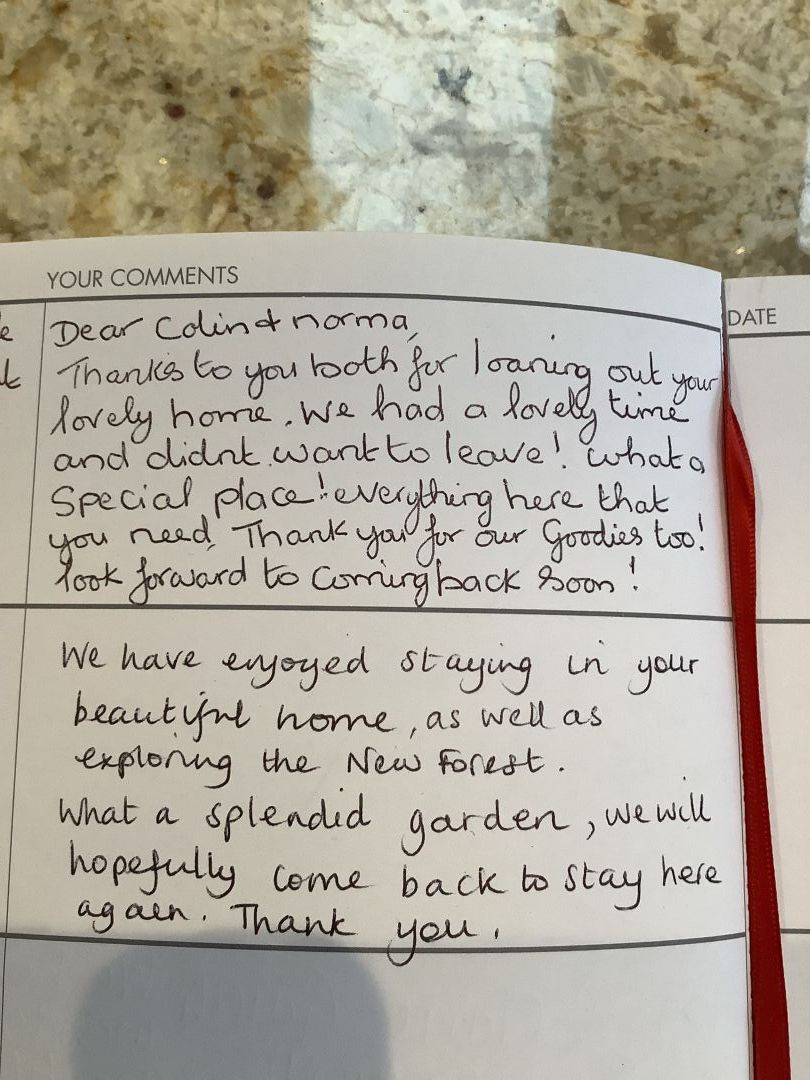 YOUR COMMENTS
DATE
Dear Colin & norma,
Thanks to you both for loaning out your
lovely home. We had a lovely time
and didnt want to leave! What a
Special place! everything here that
you need. Thank you for our Goodies too!
look forward to coming back soon!
We have enjoyed staying in your
beautiful home, as well as
exploring the New Forest.
What a splendid garden, we will
hopefully come back to stay here
again. Thank you.